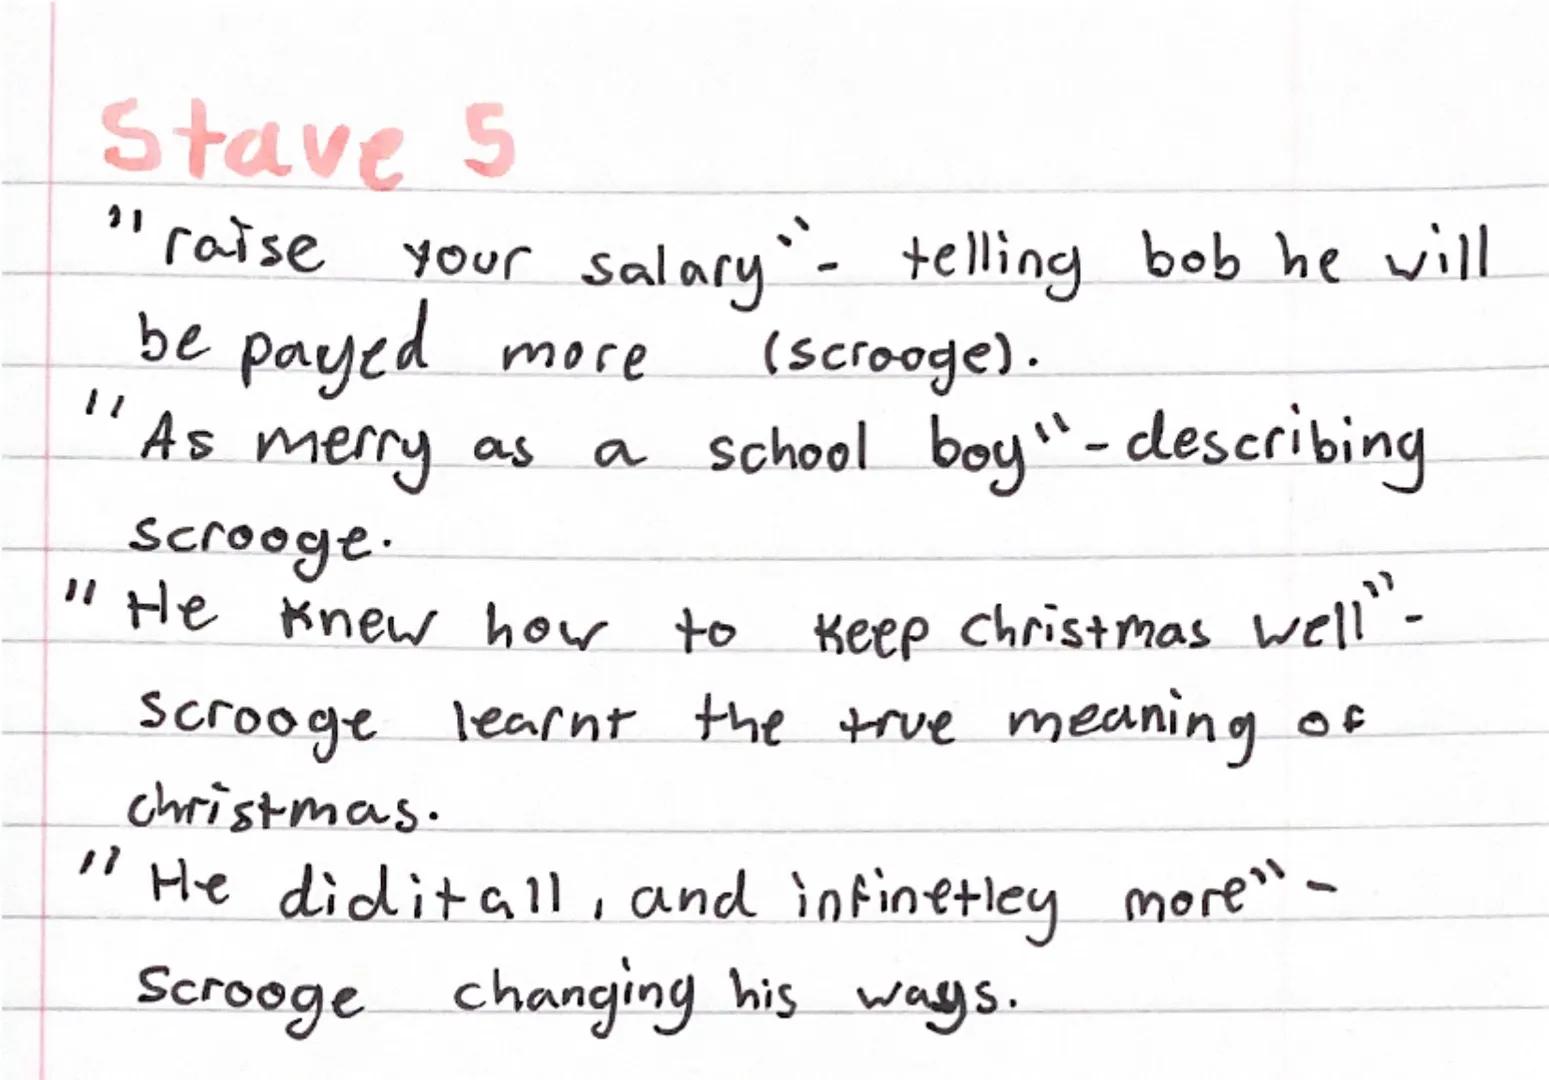 Stave 5
"raise your salary"- telling bob he will
be payed more (scrooge).
"As merry as a school boy"-describing
scrooge.
"He knew how to keep christmas well"-
scrooge learnt the true meaning of
christmas.
"He did it all, and infinetley more"-
Scrooge changing his ways.